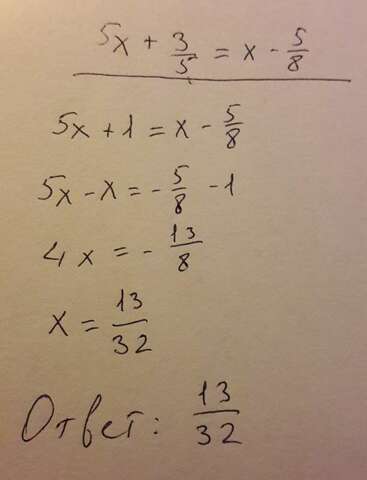 5x + 3/5 = x - 5/8
5x + 1 = x - 5/8
5x - x = - 5/8 - 1
4x = - 13/8
x = 13/32
Ответ: 13/32